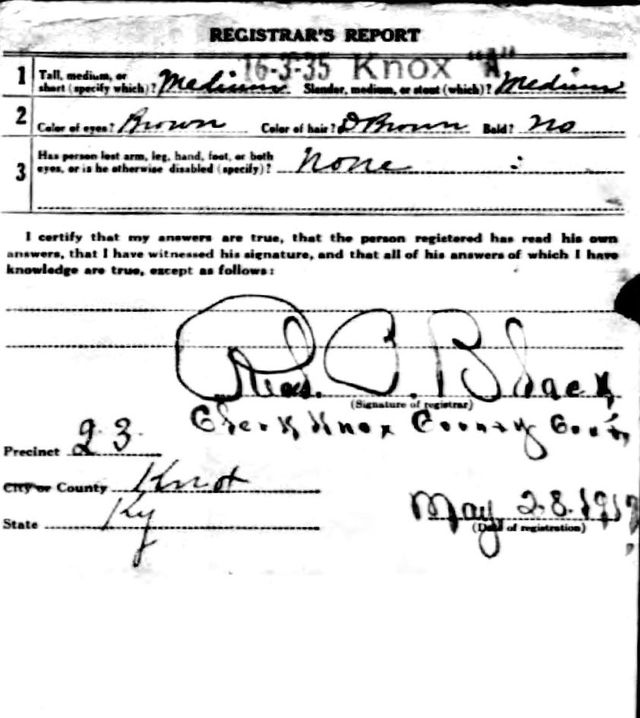 REGISTRAR'S REPORT
16-3-35 Knox "A"
1 Tall, medium, or short (specify which)? Medium Slender, medium, or stout (which)? Medium
2 Color of eyes? Brown Color of hair? D Brown Bald? No
3 Has person lost arm, leg, hand, foot, or both
eyes, or is he otherwise disabled (specify)? None
I certify that my answers are true, that the person registered has read his own
answers, that I have witnessed his signature, and that all of his answers of which I have
knowledge are true, except as follows:
C. Black
(Signature of registrar)
Clerk Knox County
Precinct 23.
City or County Knox
State Ky
May 28.
(Date of registration)